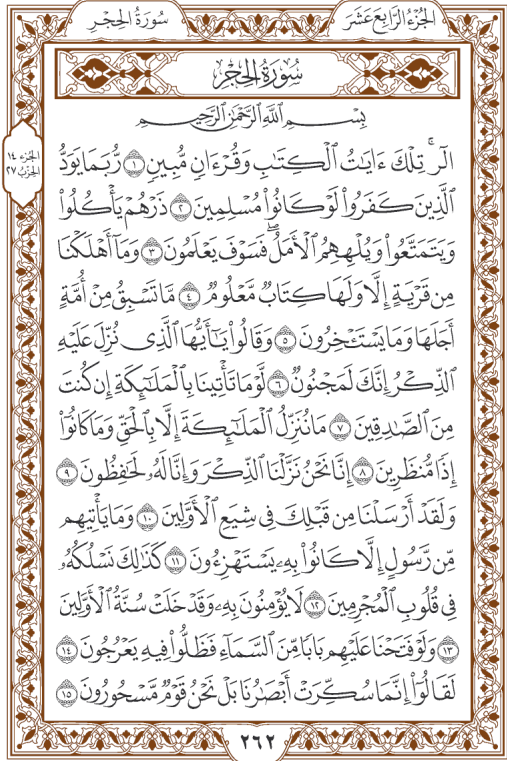 الجُزْءُ الرَّابِعَ عَشَرَ
سُورَةُ الحِجْرِ
سُورَةُ الحِجْرِ
بِسْمِ اللَّهِ الرَّحْمَٰنِ الرَّحِيمِ
الجزء ١٤
الحزب ٢٧
الٓرۚ تِلْكَ ءَايَٰتُ ٱلْكِتَٰبِ وَقُرْءَانٖ مُّبِينٖ ١ رُّبَمَا يَوَدُّ
ٱلَّذِينَ كَفَرُواْ لَوْ كَانُواْ مُسْلِمِينَ ٢ ذَرْهُمْ يَأْكُلُواْ
وَيَتَمَتَّعُواْ وَيُلْهِهِمُ ٱلْأَمَلُۖ فَسَوْفَ يَعْلَمُونَ ٣ وَمَآ أَهْلَكْنَا
مِن قَرْيَةٍ إِلَّا وَلَهَا كِتَابٞ مَّعْلُومٞ ٤ مَّا تَسْبِقُ مِنْ أُمَّةٍ
أَجَلَهَا وَمَا يَسْتَـْٔخِرُونَ ٥ وَقَالُواْ يَٰٓأَيُّهَا ٱلَّذِي نُزِّلَ عَلَيْهِ
ٱلذِّكْرُ إِنَّكَ لَمَجْنُونٞ ٦ لَّوْمَا تَأْتِينَا بِٱلْمَلَٰٓئِكَةِ إِن كُنتَ
مِنَ ٱلصَّٰدِقِينَ ٧ مَا نُنَزِّلُ ٱلْمَلَٰٓئِكَةَ إِلَّا بِٱلْحَقِّ وَمَا كَانُوٓاْ
إِذٗا مُّنظَرِينَ ٨ إِنَّا نَحْنُ نَزَّلْنَا ٱلذِّكْرَ وَإِنَّا لَهُۥ لَحَٰفِظُونَ ٩
وَلَقَدْ أَرْسَلْنَا مِن قَبْلِكَ فِي شِيَعِ ٱلْأَوَّلِينَ ١٠ وَمَا يَأْتِيهِم
مِّن رَّسُولٍ إِلَّا كَانُواْ بِهِۦ يَسْتَهْزِءُونَ ١١ كَذَٰلِكَ نَسْلُكُهُۥ
فِي قُلُوبِ ٱلْمُجْرِمِينَ ١٢ لَا يُؤْمِنُونَ بِهِۦ وَقَدْ خَلَتْ سُنَّةُ ٱلْأَوَّلِينَ
١٣ وَلَوْ فَتَحْنَا عَلَيْهِم بَابٗا مِّنَ ٱلسَّمَآءِ فَظَلُّواْ فِيهِ يَعْرُجُونَ ١٤
لَقَالُوٓاْ إِنَّمَا سُكِّرَتْ أَبْصَٰرُنَا بَلْ نَحْنُ قَوْمٞ مَّسْحُورُونَ ١٥
٢٦٢